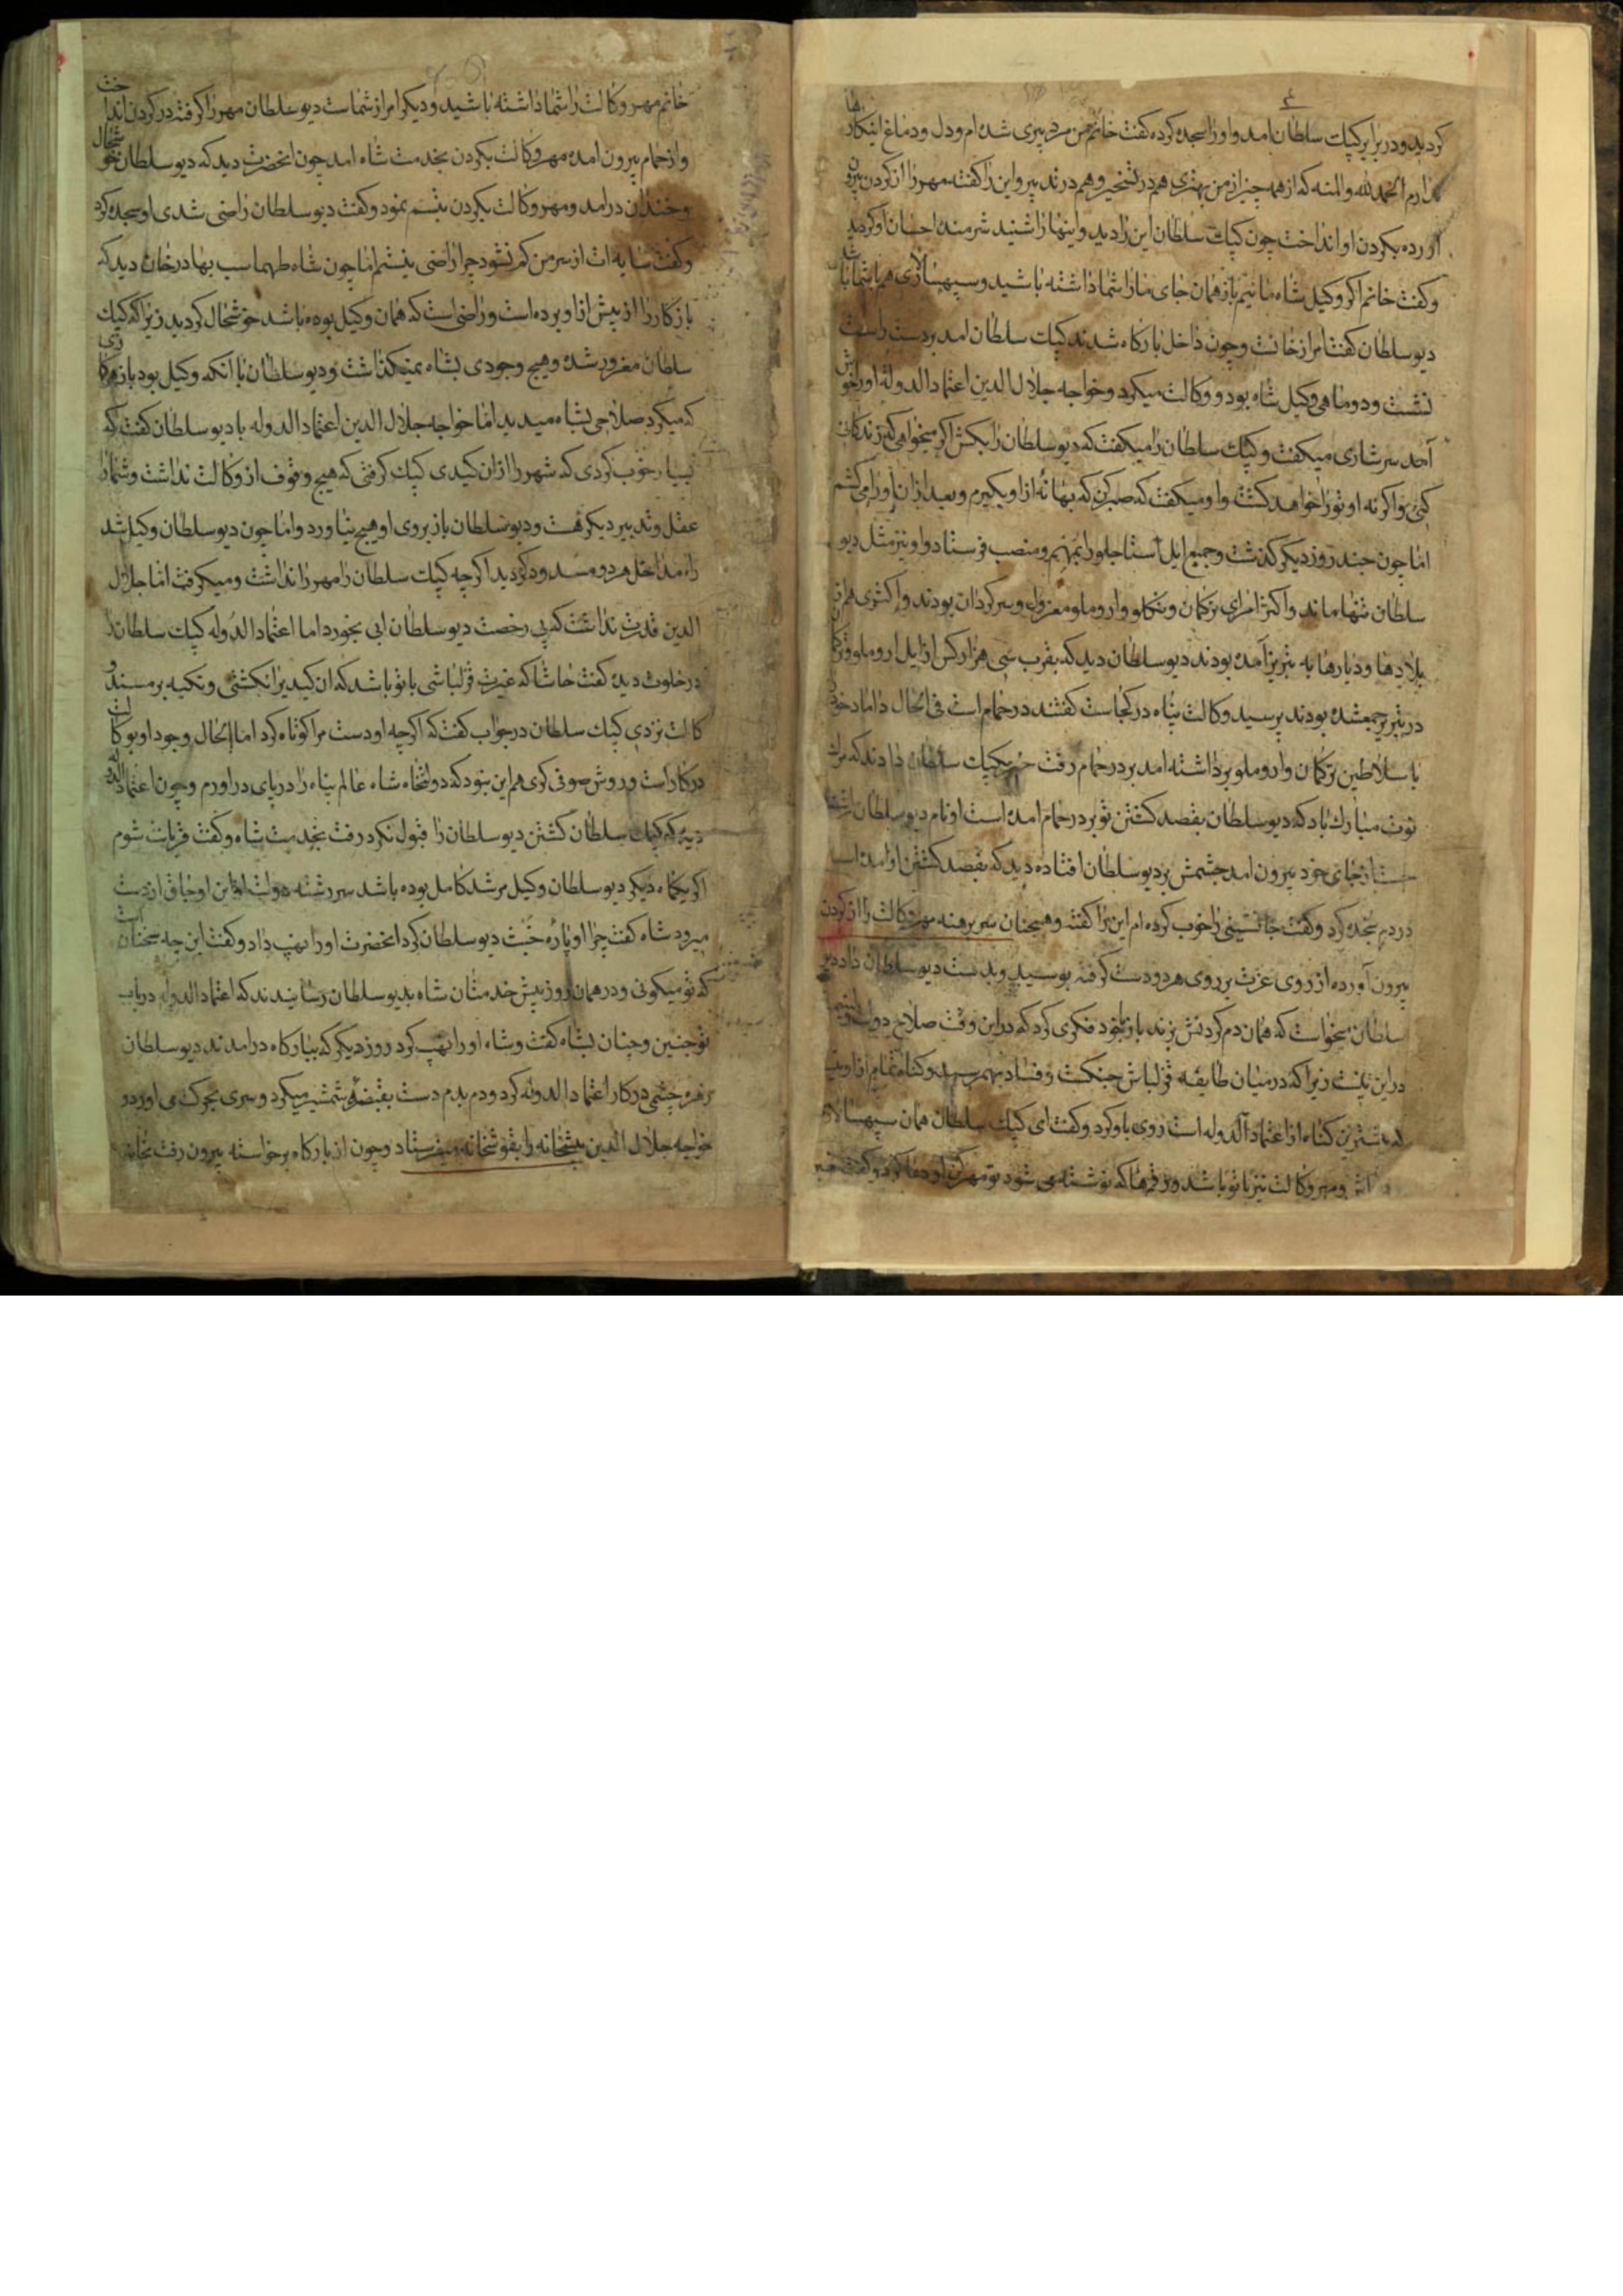 کردید ودر برابر کپک سلطان امد واورا سجده کرده گفت خانم من مرد پیری شده ام ودل ودماغ اینکارها
ندارم الحمدلله والمنه که از همه چیز از من بهتری هم در شمخیر وهم در تدبیر واین را گفته مهر را از کردن بیرون
آورده بکردن او انداخت چون کپک سلطان این را دید واینها را شنید شرمنده احسان او کردید
وگفت خانم اکر وکیل شاه مائیم باز همان جای ما را شما داشته باشید وسپهسالاری هم با شما باشد
دیو سلطان گفت امر از خانست وچون داخل بارکاه شدند کپک سلطان امد بر دست راست
نشست ودو ماهی وکیل شاه بود ووکالت میکرد وخواجه جلال الدین اعتماد الدوله اورا خوش
آمد سرشاری میکفت وکپک سلطان را میکفت که دیو سلطان را بکش اکر میخواهی که زندکانی
کنی واکر نه او تورا خواهد کشت واو میکفت که صبر کن که بهانه از او بکیرم وبعد ازان اورا می کشم
اما چون چند روز دیکر کذشت وجمیع ایل استاجلو را بمهم ومنصب فرستاد واو نیز مثل دیو
سلطان تنها ماند واکثر امرای ترکمان وتکلو واروملو معزول وسرکردان بودند واکثری هم از
بلادها ودیارها به تبریز آمده بودند دیو سلطان دید که بقرب سی هزار کس از ایل اروملو وترکمان
در تبریز جمعشده بودند پرسید وکالت پناه در کجاست گفتند در حمام است فی الحال داماد خود
با سلاطین ترکمان واروملو برداشته امد بر در حمام رفت خبر بکپک سلطان دادند که مرک
نوت مبارک باد که دیو سلطان بقصد کشتن تو بر در حمام امده است او نام دیو سلطان
از جای خود بیرون امد چشمش بر دیو سلطان افتاده دید که بقصد کشتن او امده است
در دم سجده کرد وگفت جانشینی را خوب کرده ام این را گفته وهمچنان سر برهنه مهر وکالت را از کردن
بیرون آورده از روی عزت بر روی هر دو دست گرفته بوسید وبدست دیو سلطان داد دیو
سلطان میخواست که همان دم کردنش بزند باز بخود فکری کرد که دراین وقت صلاح دولت
دراین نیست زیرا که در میان طایفه قزلباش جنکست وفساد بهم رسید وکناه تمام از او نیست
که بیشترین کناه از اعتماد الدوله است روی باو کرد وگفت ای کپک سلطان همان سپهسالار
باش ومهر وکالت نیز با تو باشد ورقمها که نوشته می شود تو مهر کن او دعا کرد وگفت
خانم مهر وکالت را شما داشته باشید ودیکر امر از شماست دیو سلطان مهر را گرفته در کردن انداخت
واز حمام بیرون امده مهر وکالت بکردن بخدمت شاه امد چون انحضرت دید که دیو سلطان خوشحال
وخندان درامد ومهر وکالت بکردن تبسم نمود وگفت دیو سلطان راضی شدی او سجده کرد
وگفت سایه ات از سر من کم نشود چرا راضی نیستم اما چون شاه طهماسب بهادرخان دید که
باز کار را از پیش از او برده است وراضی است که همان وکیل بوده باشد خوشحال کردید زیرا که کپک
سلطان مغرور شده وهیچ وجودی بشاه نمیکذاشت ودیو سلطان با انکه وکیل بود باز هر کاری
که میکرد صلاحی بشاه میدید اما خواجه جلال الدین اعتماد الدوله با دیو سلطان گفت که
بسیار خوب کردی که شهر را ازان کیدی کپک کرفتی که هیچ وقوف از وکالت نداشت وشما را
عقل وتدبیر دیکر هست ودیو سلطان باز بروی او هیچ نیاورد واما چون دیو سلطان وکیل شد
راه مداخل هر دو مسدود کردید اکر چه کپک سلطان را مهر را نداشت ومیکرفت اما جلال
الدین قدرت نداشت که بی رخصت دیو سلطان ابی بخورد اما اعتماد الدوله کپک سلطان را
در خلوت دیده گفت حاشا که غیرت قزلباشی با تو باشد که ان کیدیرا نکشتی وتکیه بر مسند و
کالت نزدی کپک سلطان در جواب گفت که اکرچه او دست مرا کوتاه کرد اما الحال وجود او بوکالت
در کار است وروش صوفی کری هم این نبود که دولتخاه شاه عالم پناه را در پای در اورم وچون اعتماد الدوله
دید که کپک سلطان کشتن دیو سلطان را قبول نکرد رفت بخدمت شاه وگفت قربانت شوم
اکر یکماه دیکر دیو سلطان وکیل مرشد کامل بوده باشد سر رشته دولت از این اوجاق از دست
میرود شاه گفت چرا او پاره خبث دیو سلطان کرد انحضرت اورا نهیب داد وگفت این چه سخنان است
که تو میکوئی ودر همان روز پیش خدمتان شاه بدیو سلطان رسانیدند که اعتماد الدوله در باب
تو چنین وچنان بشاه گفت وشاه اورا نهیب کرد روز دیکر که ببارکاه درامدند دیو سلطان
زهره چشمی در کار اعتماد الدوله کرد ودم بدم دست بقبضه شمشیر میکرد وسری بحرکت می اورد و
خواجه جلال الدین میشخانه را بقوشخانه میفرستاد وچون از بارکاه برخواسته بیرون رفت بخانه